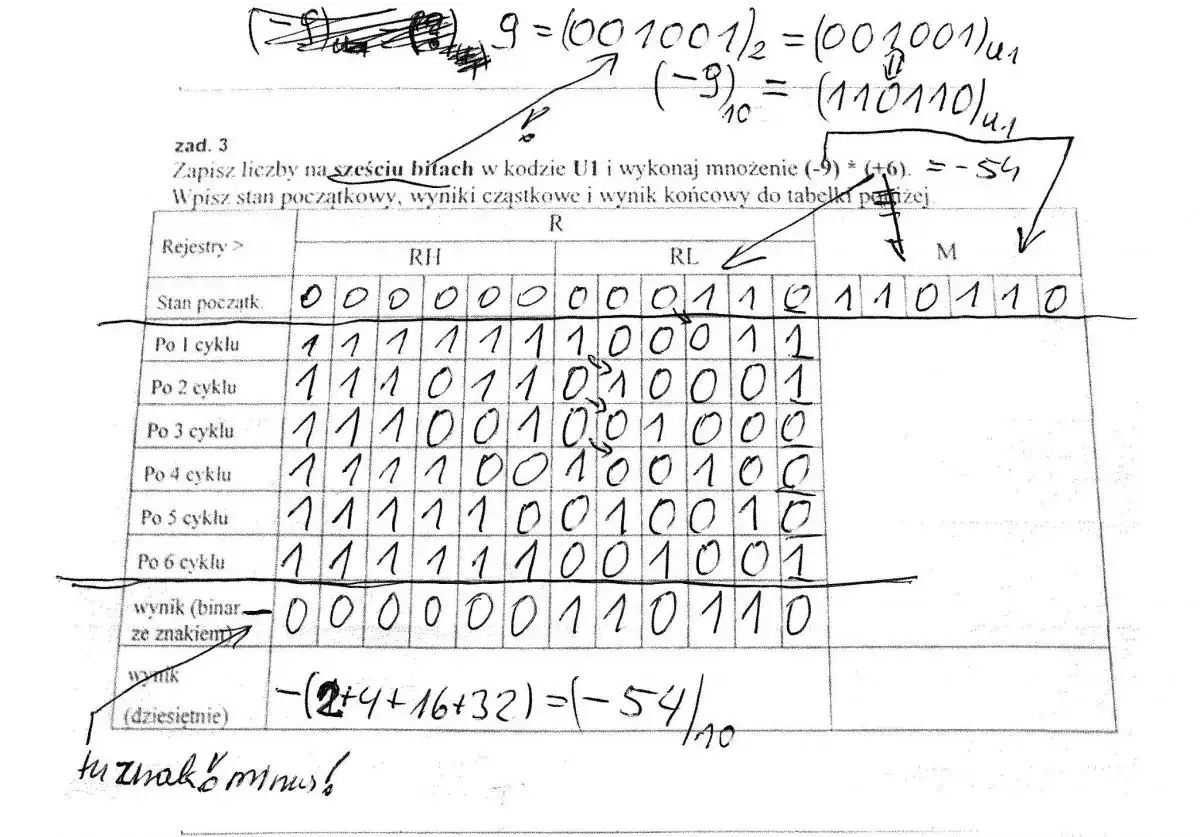 9 = (001001)₂ = (001001)U1
(-9)₁₀ = (110110)U1
zad. 3
Zapisz liczby na sześciu bitach w kodzie U1 i wykonaj mnożenie (-9) * (+6). = -54
Wpisz stan początkowy, wyniki cząstkowe i wynik końcowy do tabelki poniżej.
Rejestry > R
RH RL M
Stan początk. 0 0 0 0 0 0 0 0 0 1 1 0 1 1 0 1 1 0
Po 1 cyklu 1 1 1 1 1 1 1 0 0 0 1 1
Po 2 cyklu 1 1 1 0 1 1 0 1 0 0 0 1
Po 3 cyklu 1 1 1 0 0 1 0 0 1 0 0 0
Po 4 cyklu 1 1 1 1 0 0 1 0 0 1 0 0
Po 5 cyklu 1 1 1 1 1 0 0 1 0 0 1 0
Po 6 cyklu 1 1 1 1 1 1 0 0 1 0 0 1
wynik (binar. - 0 0 0 0 0 0 1 1 0 1 1 0
ze znakiem)
wynik
(dziesiętnie) -(2+4+16+32) = (-54)₁₀
tu znak minus!